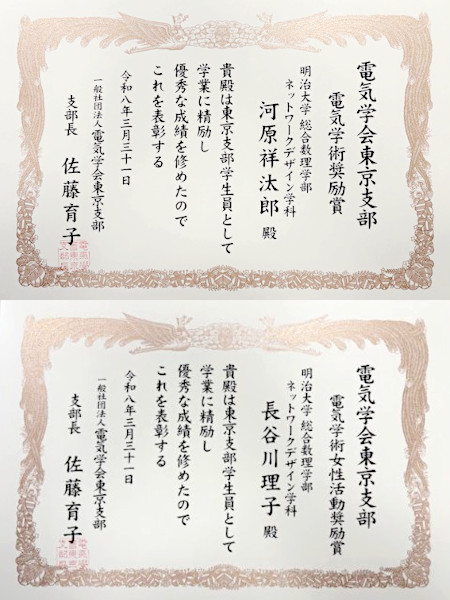 電気学会東京支部
電気学術奨励賞
明治大学 総合数理学部
ネットワークデザイン学科
河原祥汰郎 殿
貴殿は東京支部学生員として
学業に精励し
優秀な成績を修めたので
これを表彰する
令和八年三月三十一日
一般社団法人 電気学会東京支部
支部長 佐藤育子
電気学会東京支部
電気学術女性活動奨励賞
明治大学 総合数理学部
ネットワークデザイン学科
長谷川理子 殿
貴殿は東京支部学生員として
学業に精励し
優秀な成績を修めたので
これを表彰する
令和八年三月三十一日
一般社団法人 電気学会東京支部
支部長 佐藤育子